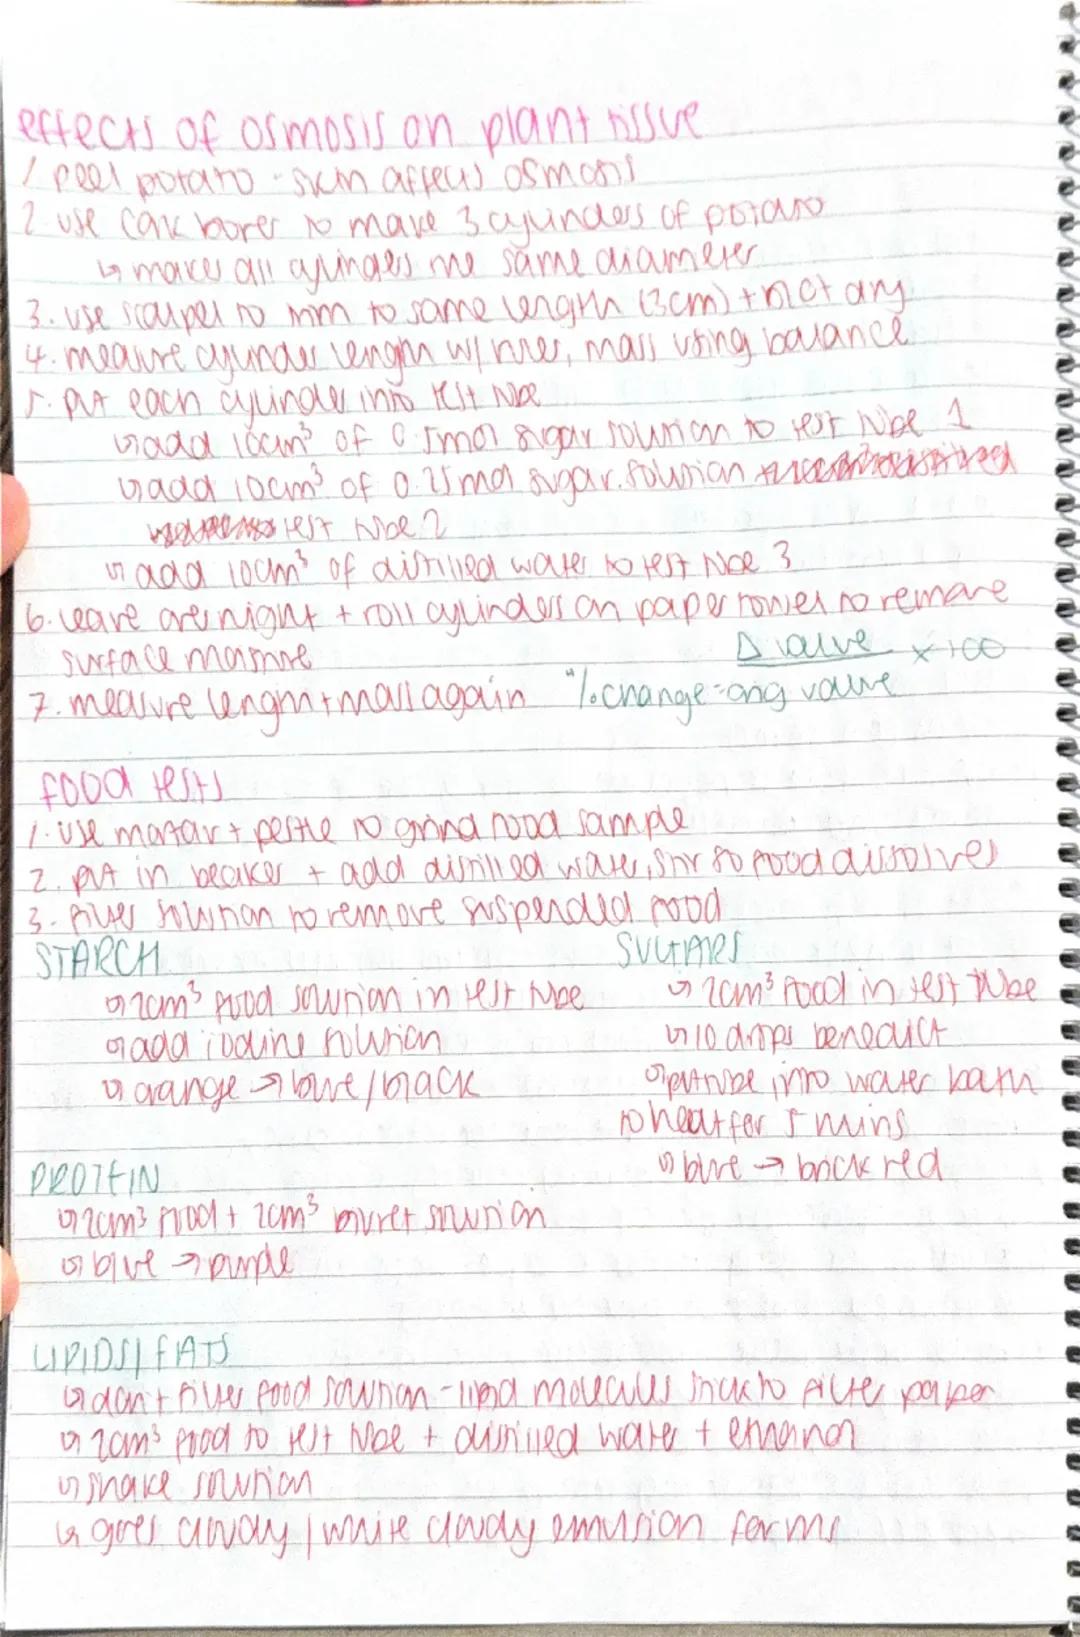 effects of osmosis on plant tissue
1 peel potato - skin affects osmosis
2. use cork borer to make 3 cylinders of potato
↳ makes all cylinders the same diameter
3. use scalpel to trim to same length (3cm) + blot dry
4. measure cylinder length w/ ruler, mass using balance
5. put each cylinder into test tube
↳ add 10cm³ of 0.5mol sugar solution to test tube 1
↳ add 10cm³ of 0.25mol sugar solution
test tube 2
↳ add 10cm³ of distilled water to test tube 3
6. leave overnight + roll cylinders on paper towel to remove
surface moisture
Δ value × 100
7. measure length + mass again % change = orig value
food tests
1. use mortar + pestle to grind food sample
2. put in beaker + add distilled water, stir so food dissolves
3. filter solution to remove suspended food
STARCH
↳ 2cm³ food solution in test tube
↳ add iodine solution
↳ orange → blue/black
SUGARS
↳ 2cm³ food in test tube
↳ 10 drops benedict
↳ put tube into water bath
to heat for 5 mins
↳ blue → brick red
PROTEIN
↳ 2cm³ food + 2cm³ biuret solution
↳ blue → purple
LIPIDS/FATS
↳ don't filter food solution - lipid molecules stick to filter paper
↳ 2cm³ food to test tube + distilled water + ethanol
↳ shake solution
↳ goes cloudy / white cloudy emulsion forms